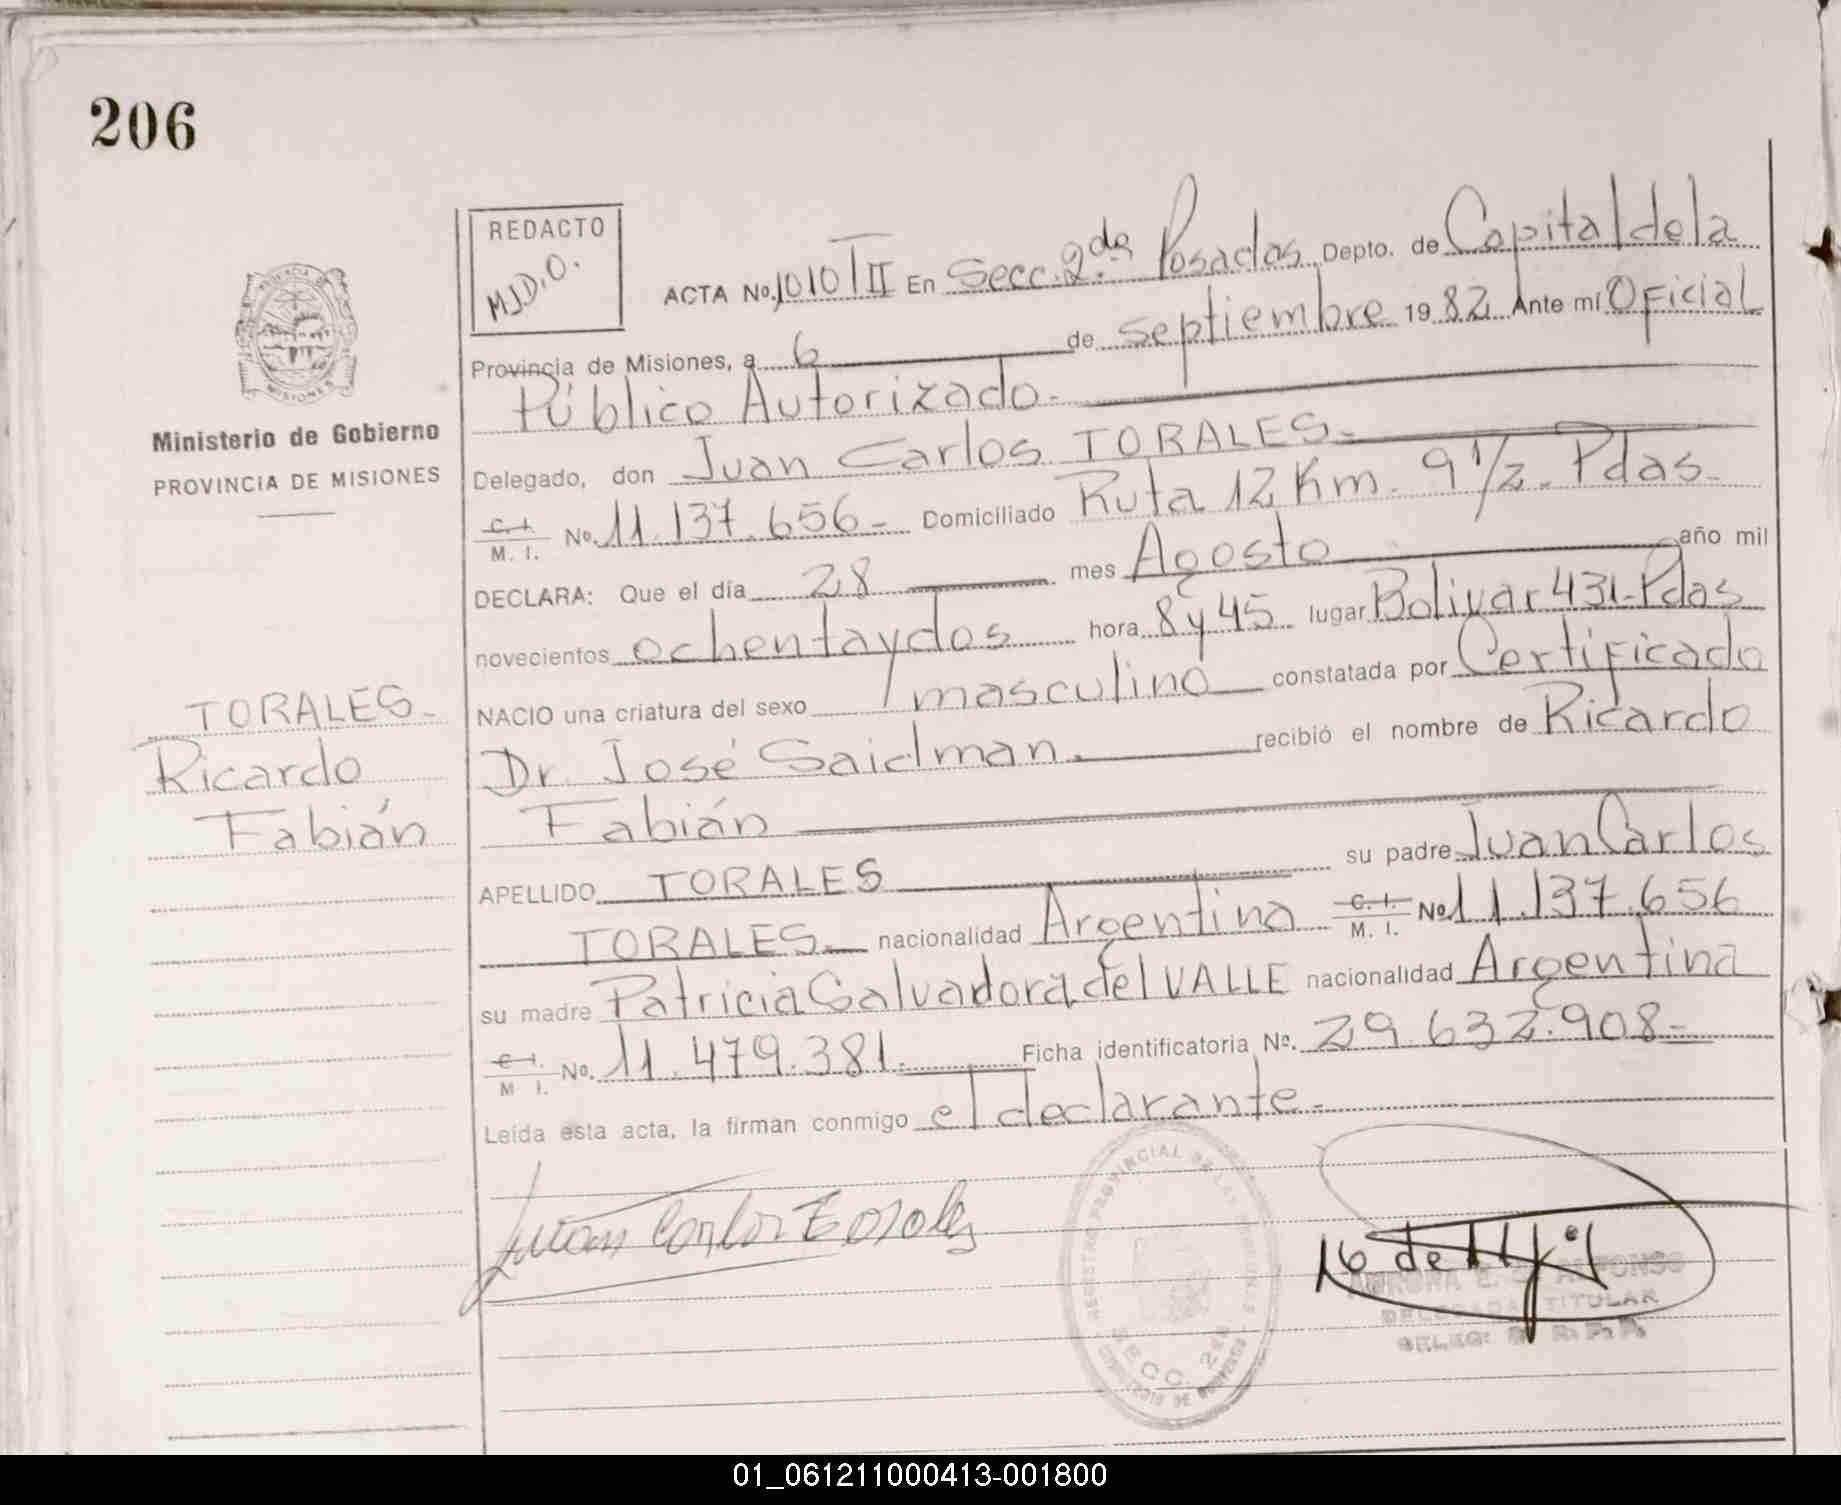 206
REDACTO
M.J.D.O.
ACTA No. 1010 T II En Secc. 2da Posadas Depto. de Capital de la
Provincia de Misiones, a 6 de septiembre 1982 Ante mí Oficial
Público Autorizado.-
Delegado, don Juan Carlos TORALES.-
C. I.
M. I. No. 11.137.656- Domiciliado Ruta 12 Km. 9 1/2. Pdas.
DECLARA: Que el día 28 mes Agosto año mil
novecientos ochentaydos hora 8 y 45 lugar Bolivar 431-Pdas
NACIO una criatura del sexo masculino constatada por Certificado
Dr. José Saidman.- recibió el nombre de Ricardo
Fabián
APELLIDO TORALES su padre Juan Carlos
TORALES.- nacionalidad Argentina C. I.
M. I. No 11.137.656
su madre Patricia Salvadora del VALLE nacionalidad Argentina
C. I.
M. I. No. 11.479.381.- Ficha identificatoria No. 29.632.908-
Leída esta acta, la firman conmigo el declarante.-
Juan Carlos Torales
REGISTRO PROVINCIAL DE LAS PERSONAS
SECC. 2da
DELEGADA TITULAR
PROVINCIA DE
MISIONES
Ministerio de Gobierno
PROVINCIA DE MISIONES
TORALES-
Ricardo
Fabián
01_061211000413-001800